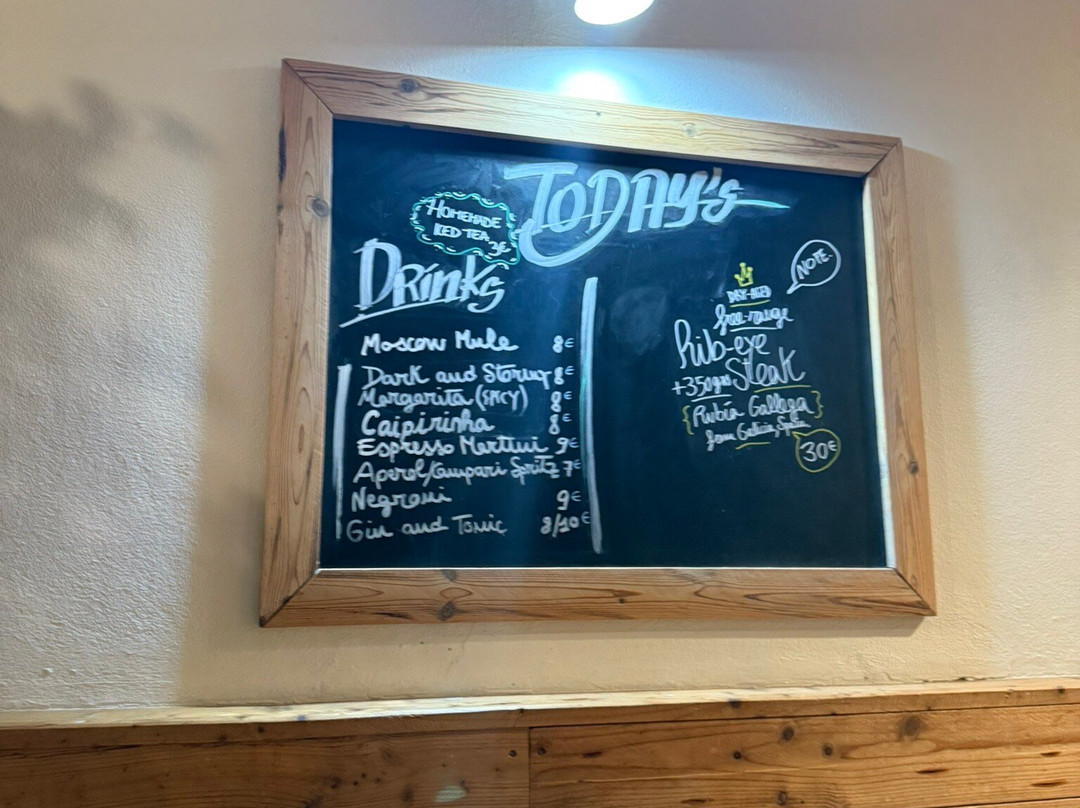 TODAY's
HOMEMADE
ICED TEA 3€
DRinks
Moscow Mule 8€
Dark and Stormy 8€
Margarita (SPICY) 8€
Caipirinha 8€
Espresso Martini 9€
Aperol/Campari Spritz 7€
Negroni 9€
Gin and Tonic 8/10€
NOTE.
DRY-AGED
free-range
Rib-eye
+350grs Steak
{Rubia Gallega}
from Galicia, Spain
30€